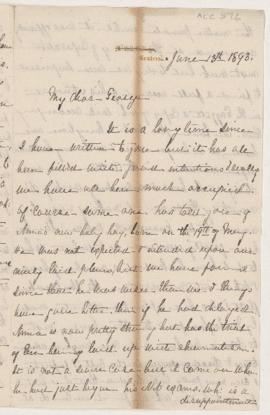 ACC 572
June 13th 1893.
My dear George
It is a long time since
I have written to you but it has all
been filled with good intentions & really
we have all been much occupied.
Of course some one has told you of
Anna's new baby boy, born on the 19th of May.
He was not expected & intruded upon our
nicely laid plans, but we have found
since that he was wiser than we & things
have gone better than if he had delayed.
Anna is now pretty strong but has the trial
of being laid up with
It is not a severe case but it came on when
he had just begun his exams, wh. is a
disappointment